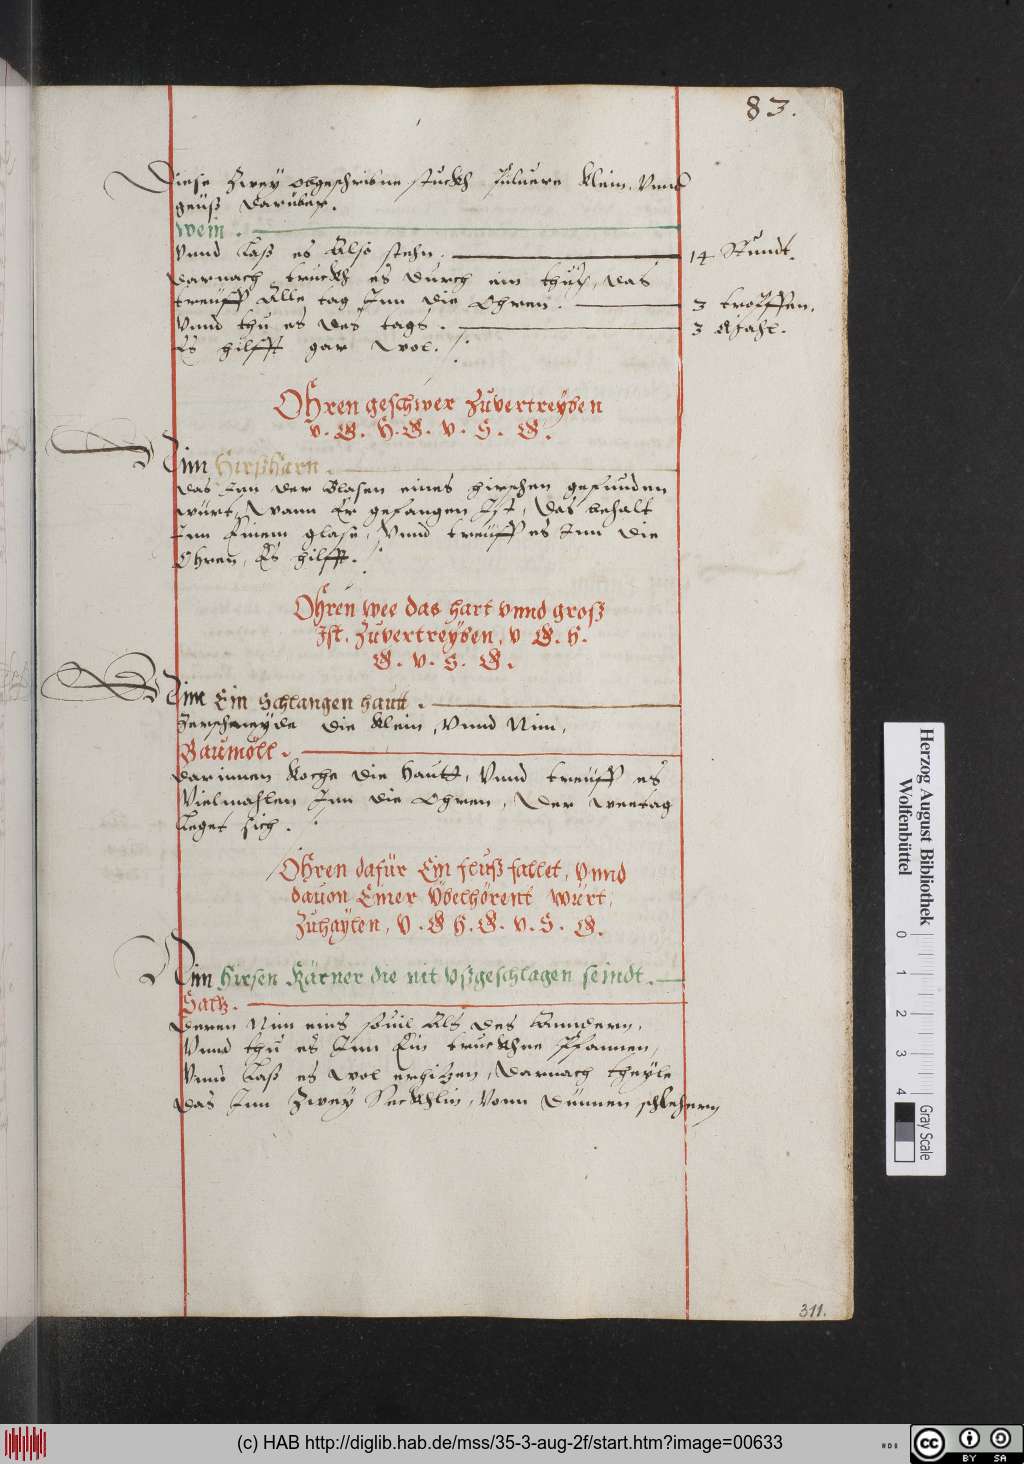 83.
Diese Zwey obgeschribne stuckh puluere klein, Vnnd
geuß darüber.
Wein.
Vnnd laß es Also stehn. 14 Stundt.
darnach truckh es durch ein thuch, das
treuff Alle tag Inn die Ohren. 3 tropffen.
Vnnd thu es des tags. 3 Mahl.
Es hilfft gar wol.
Ohren geschwer Zuuertreyben
v. G. H. G. v. S. G.
Nim Hirßharn.
das Inn der Blasen eines hirschen gefunden
würt, wann Er gefangen Ist, das behalt
Inn Einem glase, Vnnd treuff es Inn die
Ohren, Es hilfft.
Ohren wee das hart vnnd groß
Ist, Zuuertreyben, v G. H.
G. v. S. G.
Nim Ein Schlangen hautt.
Zerschneyde die klein, Vnnd Nim,
Baumöll.
darinnen koche die Hautt, Vnnd treuff es
Vielmahlen Inn die Ohren, Der weetag
leget sich.
Ohren dafür Ein fluß fallet, Vnnd
dauon Einer Vbelhörent würt,
Zuhaylen, V. G H. G. v. S. G.
Nim Hirsen Kärner die nit Vßgeschlagen seindt.
Saltz.
deren Nim eins souil Als des Anndern,
Vnnd thu es Inn Ein truckhne Pfannen,
Vnnd laß es wol erhitzen, Darnach theyle
das Inn Zwey Seckhlin, Vonn dünnen schlehern
311.
Herzog August Bibliothek
Wolfenbüttel
0 1 2 3 4
Gray Scale
(c) HAB http://diglib.hab.de/mss/35-3-aug-2f/start.htm?image=00633
cc BY SA